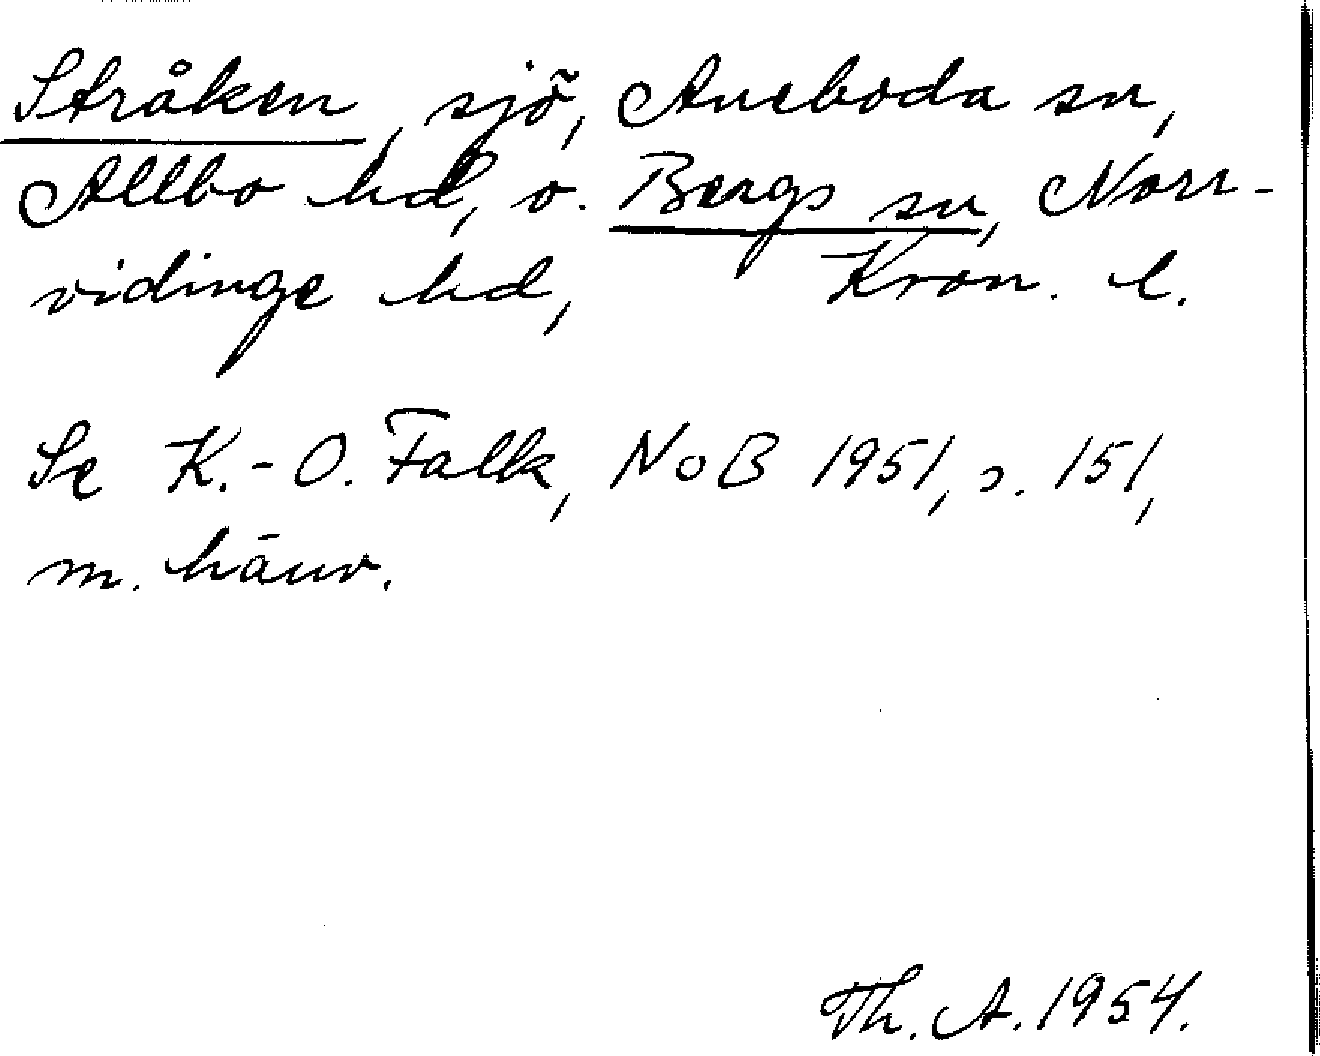 Stråken, sjö, Aneboda sn,
Allbo hd, o. Bergs sn, Norr-
vidinge hd, Kron. l.
Se K.-O. Falk, NoB 1951, s. 151,
m. hänv.
Th. A. 1954.